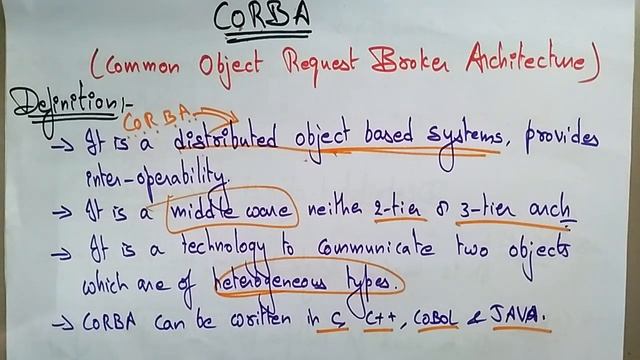 CORBA
(Common Object Request Broker Architecture)
Definition:-
CORBA
→ It is a distributed object based systems, provides
inter-operability.
→ It is a middle ware neither 2-tier or 3-tier arch
→ It is a technology to communicate two objects
which are of heterogeneous types.
→ CORBA can be written in C, C++, COBOL & JAVA.